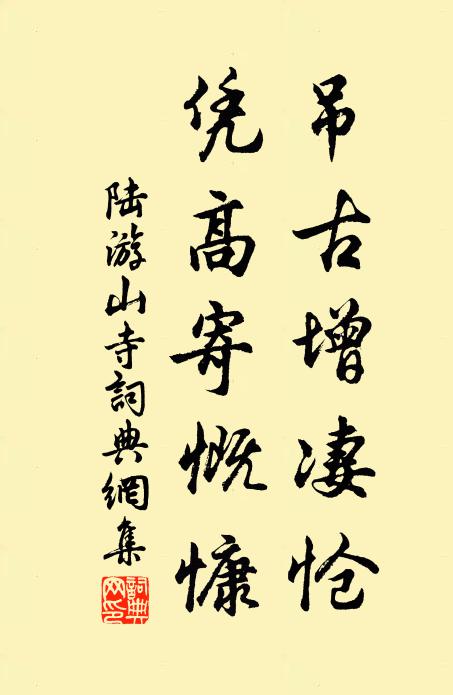 吊古增凄怆
凭高寄慨慷
陆游山寺詞典網集
詞典网印